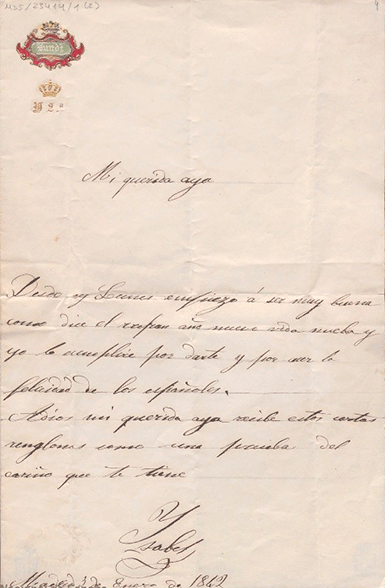 MSS/23419/1(2)
4
Mi querida aya
Desde oy Lunes empiezo á ser muy buena
como dice el refran año nuevo vida nueba y
yo lo cumplire por darte y por ser la
felicidad de los españoles.
Adios mi querida aya recibe estos cortos
renglones como una prueba del
cariño que te tiene
Ysabel
Madrid 3 de Enero de 1842